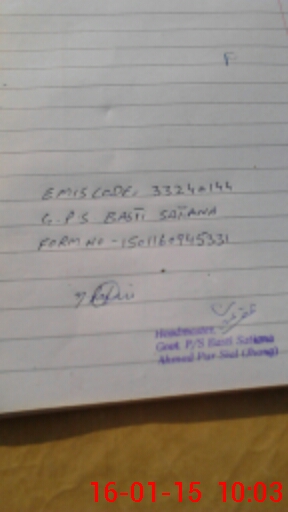 EMIS CODE, 33240144
G.P.S BASTI SATIANA
FORM NO - 1501160945331
Headmaster
Govt. P/S Basti Satiana
Ahmed Pur Sial (Jhang)
16-01-15 10:03